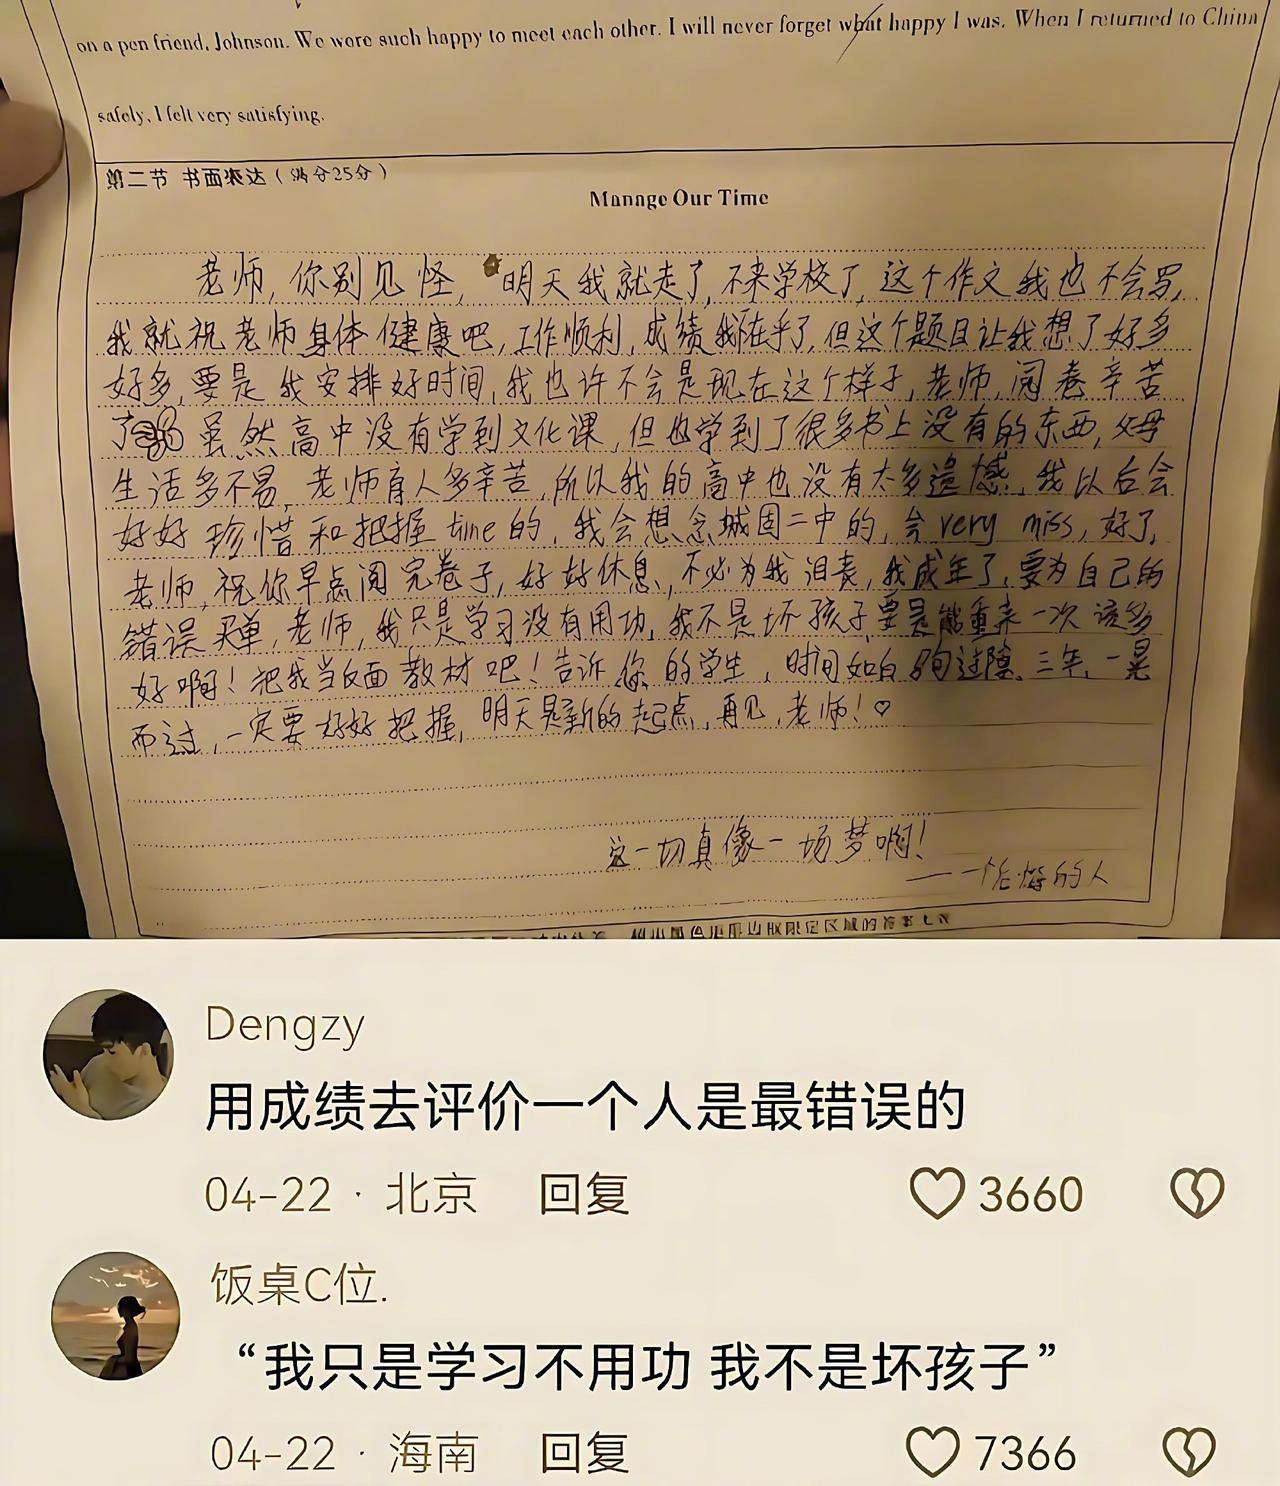 on a pen friend, Johnson. We were such happy to meet each other. I will never forget what happy I was. When I returned to China
safely, I felt very satisfying.
第二节 书面表达（满分25分）
Manage Our Time
老师,你别见怪,明天我就走了,不来学校了,这个作文我也不会写,
我就祝老师身体健康吧,工作顺利,成绩我不在乎了,但这个题目让我想了好多
好多,要是我安排好时间,我也许不会是现在这个样子,老师,阅卷辛苦
了 虽然高中没有学到文化课,但也学到了很多书上没有的东西,父母
生活多不易,老师育人多辛苦,所以我的高中也没有太多遗憾,我以后会
好好珍惜和把握time的,我会想念城固二中的,会very miss,好了,
老师,祝你早点阅完卷子,好好休息,不必为我自责,我成年了,要为自己的
错误买单,老师,我只是学习没有用功,我不是坏孩子要是能重来一次该多
好啊!把我当反面教材吧!告诉你的学生,时间如白驹过隙,三年,一晃
而过,一定要好好把握,明天是新的起点,再见,老师!♡
这一切真像一场梦啊!
——一个后悔的人
Dengzy
用成绩去评价一个人是最错误的
04-22 · 北京 回复 3660
饭桌C位.
“我只是学习不用功 我不是坏孩子”
04-22 · 海南 回复 7366